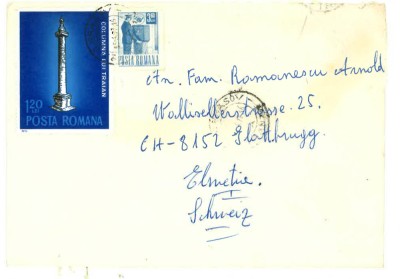 COLUMNA LUI TRAIAN
1,20
LEI
POSTA ROMANA
POSTA ROMANA
BRASOV
An. Fam. Romanescu Arnold
Wallisellerstrasse. 25.
CH-8152 Glattbrugg.
Elvetia.
Schweiz